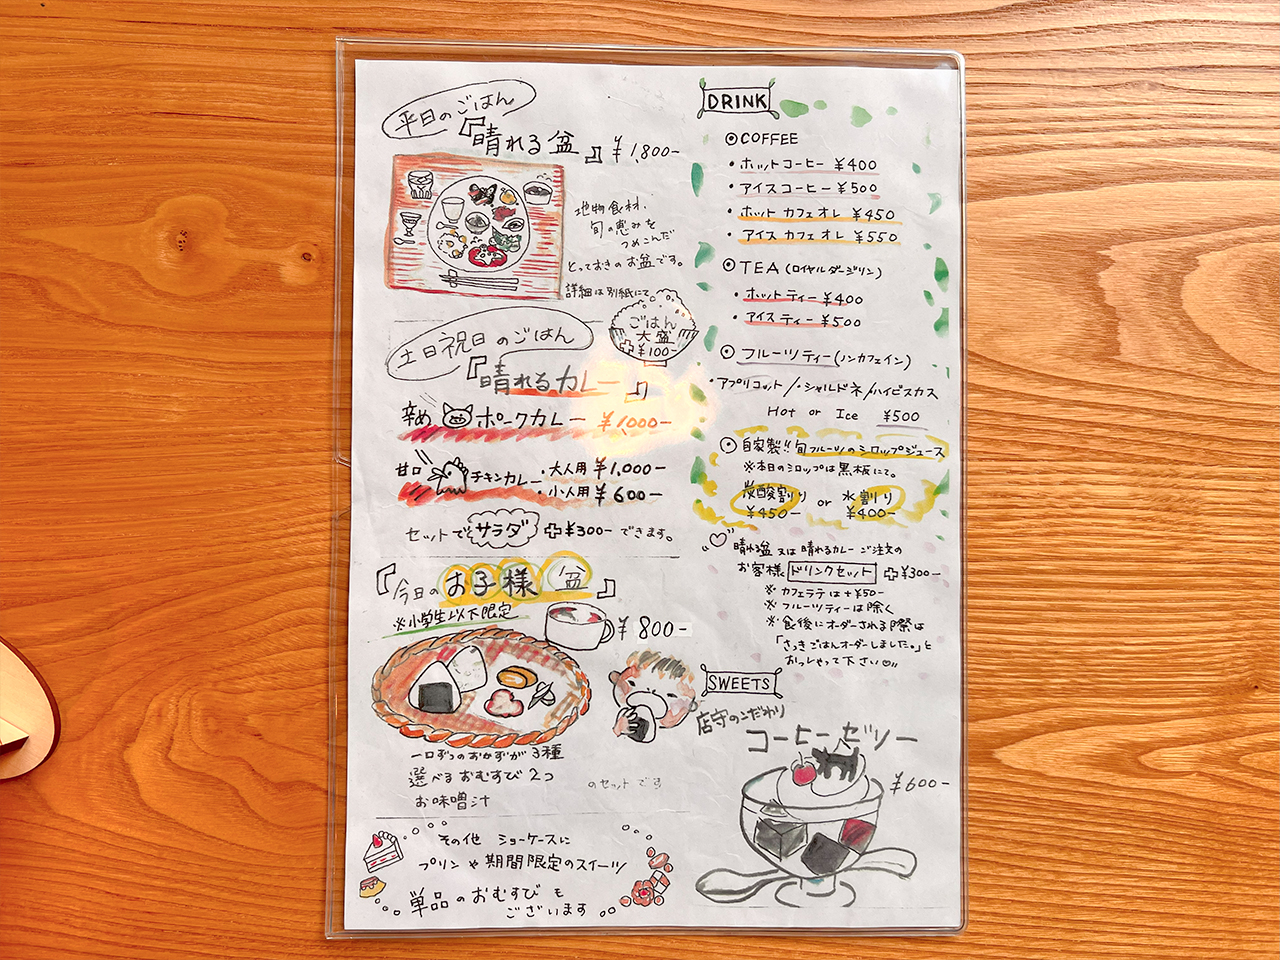 平日のごはん
『晴れる盆』 ¥1,800-
地物食材、
旬の恵みを
つめこんだ
とっておきのお盆です。
詳細は別紙にて
ごはん
大盛
✚¥100-
土日祝日のごはん
『晴れるカレー』
辛め ポークカレー ¥1,000-
甘口 チキンカレー ・大人用 ¥1,000-
・小人用 ¥600-
セットでサラダ ✚¥300- できます。
『今日のお子様盆』
※小学生以下限定
¥800-
一口ずつのおかずが3種
選べるおむすび2つ
お味噌汁
のセットです
その他 ショーケースに
プリンや期間限定のスイーツ
単品のおむすびも
ございます
DRINK
◉COFFEE
・ホットコーヒー ¥400
・アイスコーヒー ¥500
・ホットカフェオレ ¥450
・アイスカフェオレ ¥550
◉TEA(ロイヤルダージリン)
・ホットティー ¥400
・アイスティー ¥500
◉フルーツティー(ノンカフェイン)
・アプリコット/・シャルドネ/ハイビスカス
Hot or Ice ¥500
◉自家製!!旬フルーツのシロップジュース
※本日のシロップは黒板にて。
炭酸割り or 水割り
¥450- ¥400-
晴れる盆又は晴れるカレーご注文の
お客様 ドリンクセット ✚¥300-
※カフェラテは+¥50-
※フルーツティーは除く
※食後にオーダーされる際は
「さっきごはんオーダーしました。」と
おっしゃって下さい♡!!
SWEETS
店守のこだわり
コーヒーゼリー
¥600-